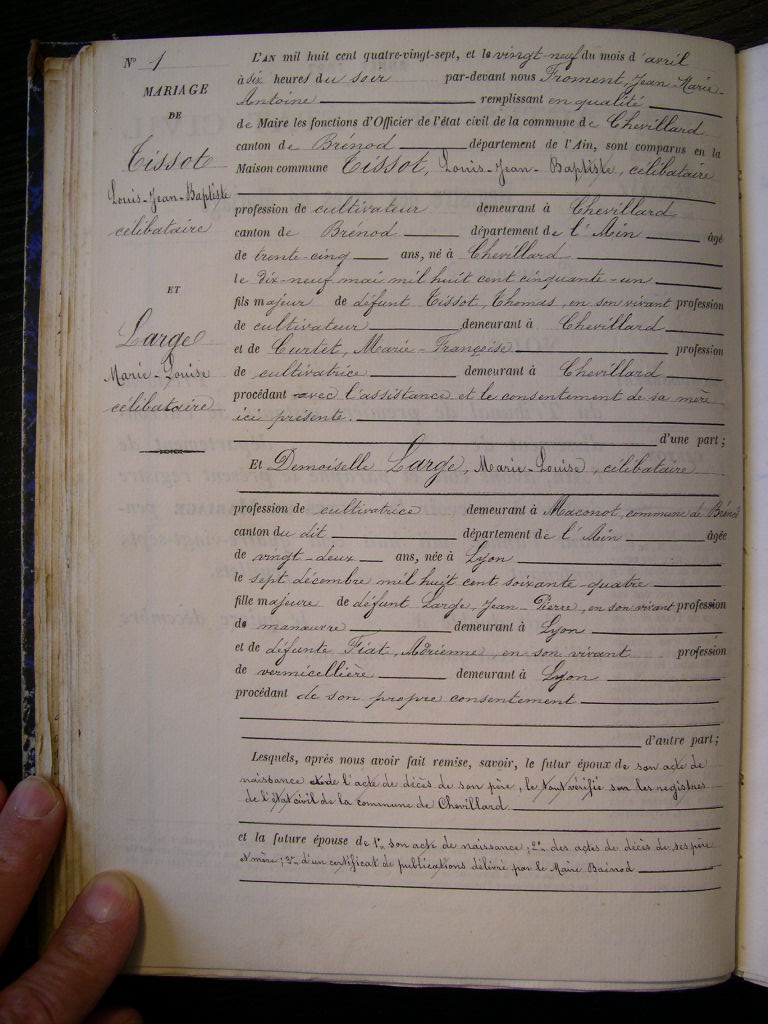 N° 1
MARIAGE
DE
Tissot
Louis-Jean-Baptiste
célibataire
ET
Large
Marie-Louise
célibataire
L'AN mil huit cent quatre-vingt-sept, et le vingt-neuf du mois d'avril
à six heures du soir par-devant nous Froment, Jean-Marie-
Antoine remplissant en qualité
de Maire les fonctions d'Officier de l'état civil de la commune de Chevillard
canton de Brénod département de l'Ain, sont comparus en la
Maison commune Tissot, Louis-Jean-Baptiste, célibataire
profession de cultivateur demeurant à Chevillard
canton de Brénod département de l'Ain âgé
de trente-cinq ans, né à Chevillard
le dix-neuf mai mil huit cent cinquante-un
fils majeur de défunt Tissot, Thomas, en son vivant profession
de cultivateur demeurant à Chevillard
et de Curtet, Marie-Françoise profession
de cultivatrice demeurant à Chevillard
procédant avec l'assistance et le consentement de sa mère
ici présente.
d'une part;
Et Demoiselle Large, Marie-Louise, célibataire
profession de cultivatrice demeurant à Maconot, commune de Brénod
canton du dit département de l'Ain âgée
de vingt-deux ans, née à Lyon
le sept décembre mil huit cent soixante-quatre
fille majeure de défunt Large, Jean-Pierre, en son vivant profession
de manœuvre demeurant à Lyon
et de défunte Fiat, Adrienne, en son vivant profession
de vermicellière demeurant à Lyon
procédant de son propre consentement
d'autre part;
Lesquels, après nous avoir fait remise, savoir, le futur époux de son acte de
naissance et de l'acte de décès de son père, le tout vérifié sur les registres
de l'état civil de la commune de Chevillard
et la future épouse de 1° son acte de naissance; 2° des actes de décès de ses père
et mère; 3° d'un certificat de publications délivré par le Maire Brénod